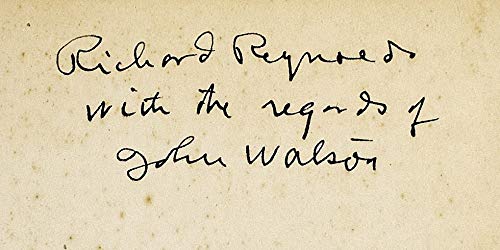 Richard Reynolds
with the regards of
John Walson